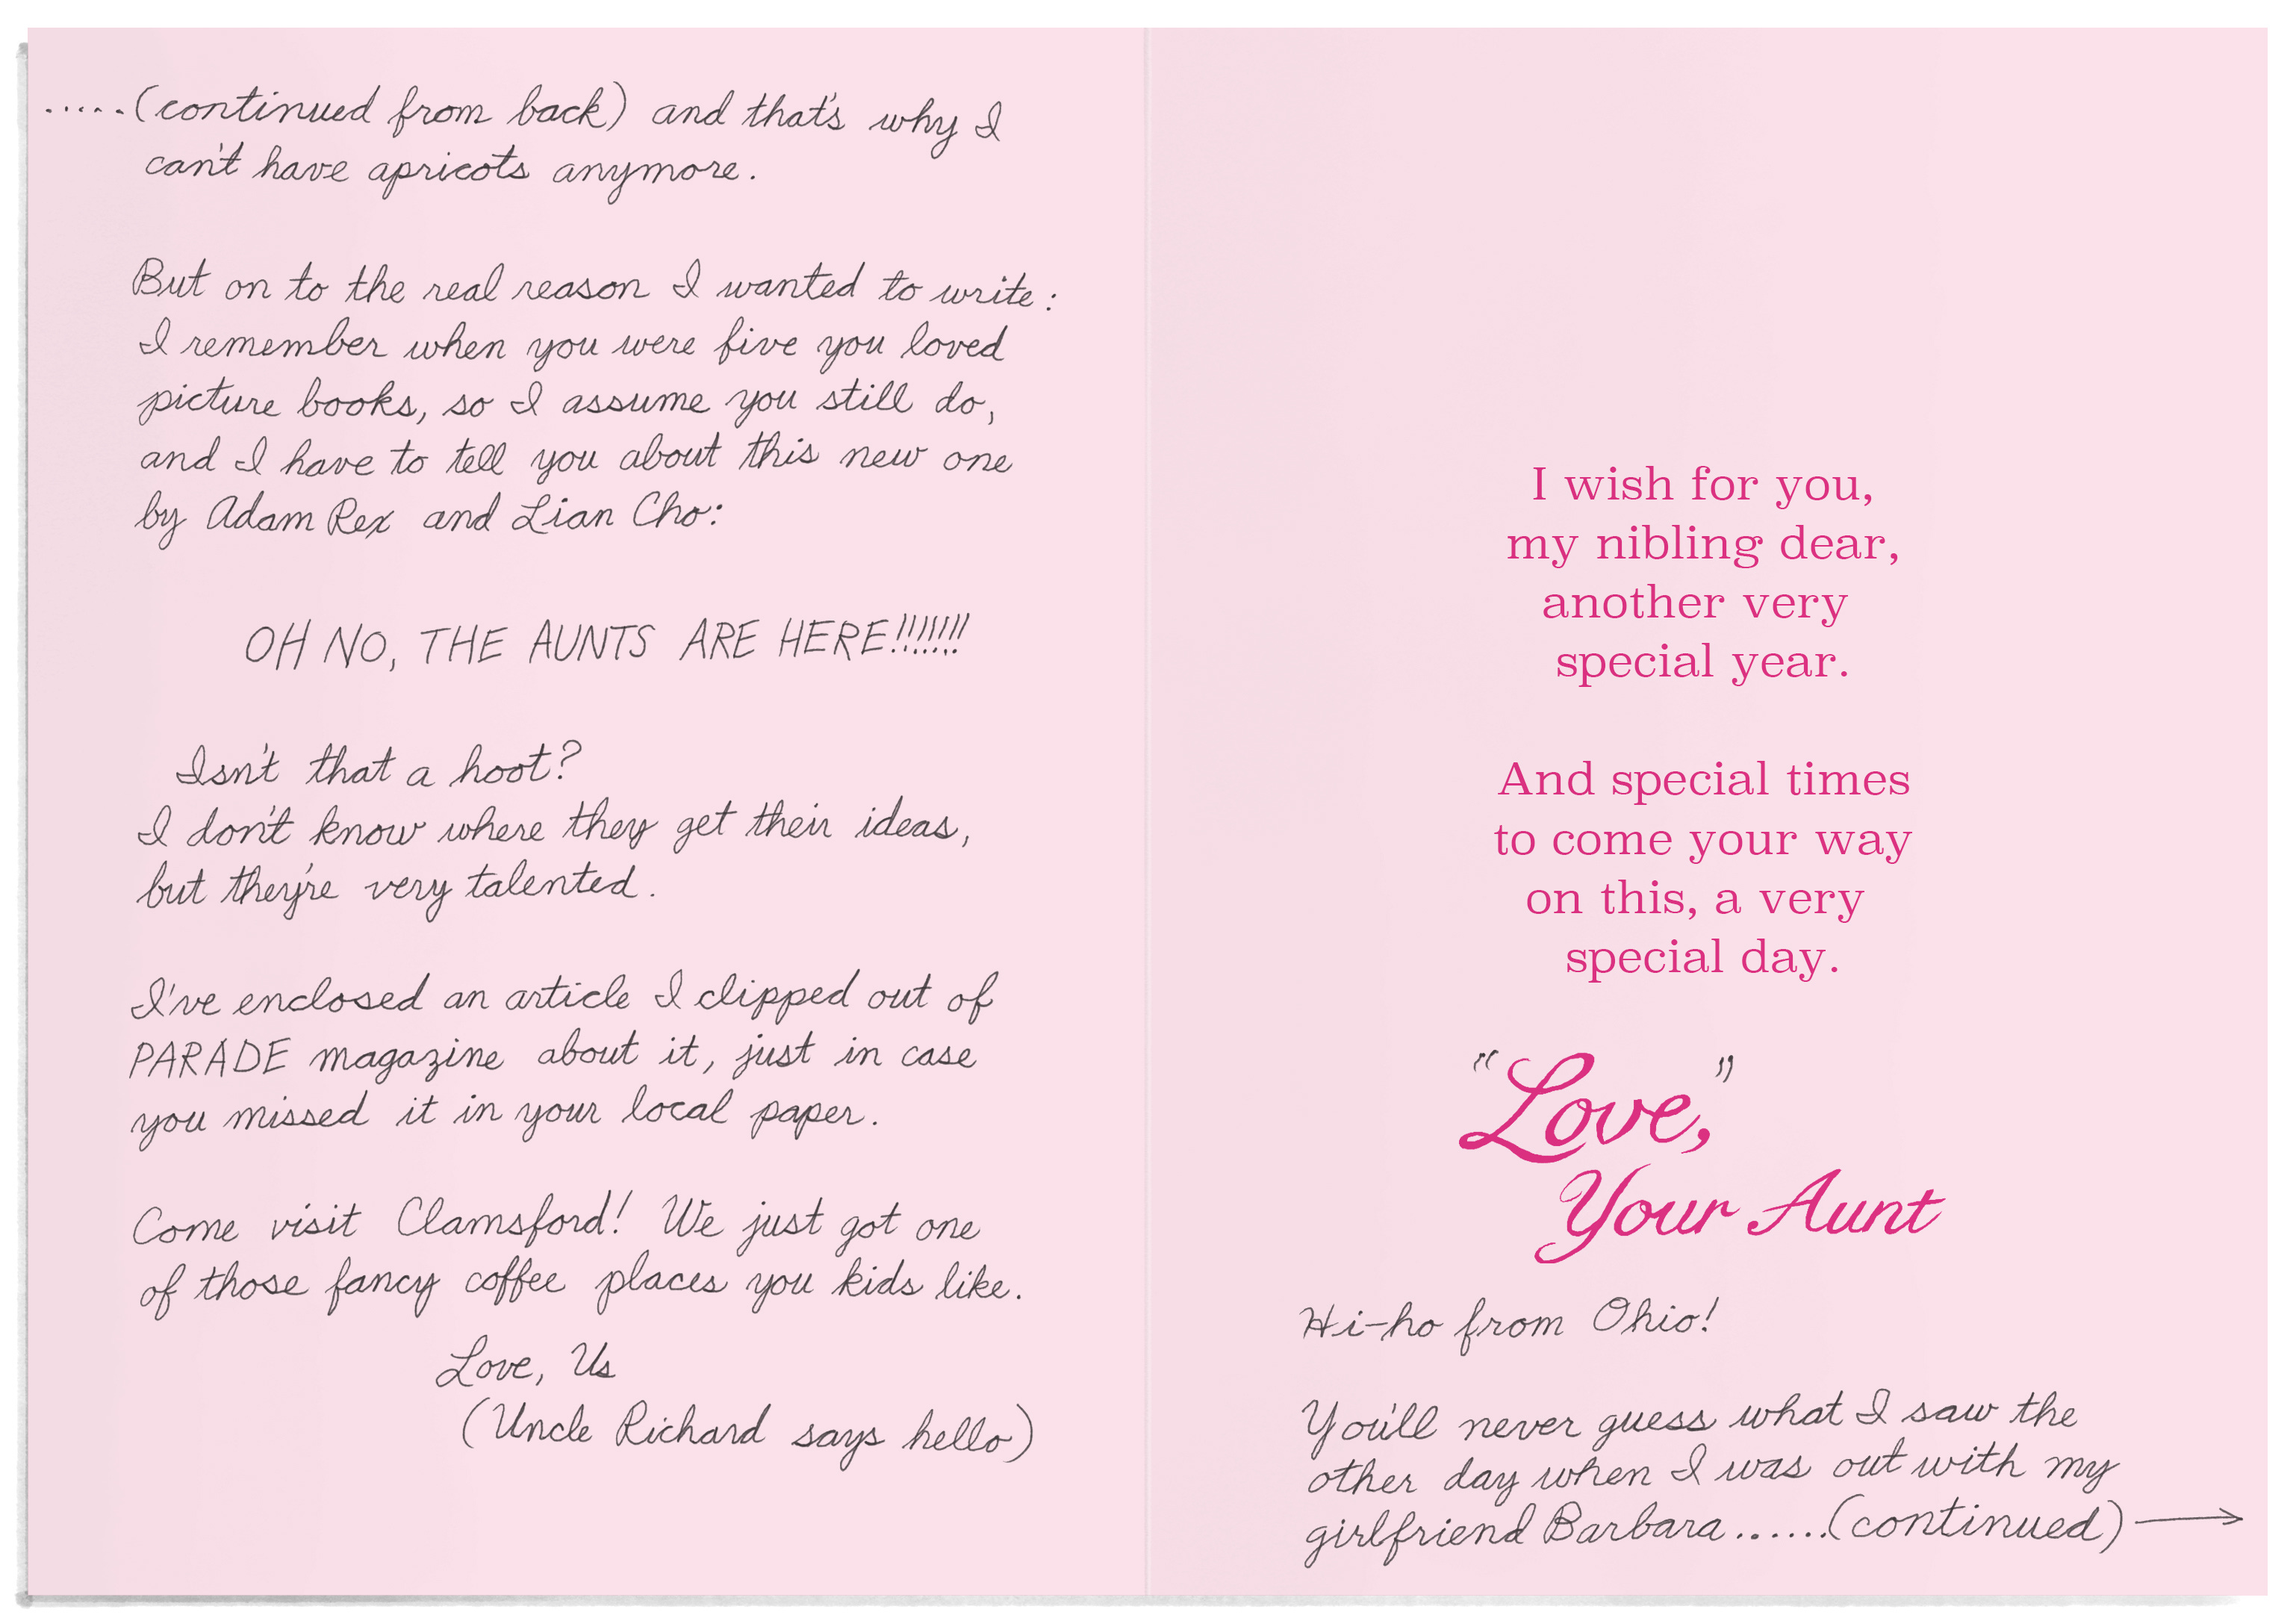 .....(continued from back) and that's why I
can't have apricots anymore.
But on to the real reason I wanted to write:
I remember when you were five you loved
picture books, so I assume you still do,
and I have to tell you about this new one
by Adam Rex and Lian Cho:
OH NO, THE AUNTS ARE HERE!!!!!!!
Isn't that a hoot?
I don't know where they get their ideas,
but they're very talented.
I've enclosed an article I clipped out of
PARADE magazine about it, just in case
you missed it in your local paper.
Come visit Clamsford! We just got one
of those fancy coffee places you kids like.
Love, Us
(Uncle Richard says hello)
I wish for you,
my nibling dear,
another very
special year.
And special times
to come your way
on this, a very
special day.
"Love,"
Your Aunt
Hi-ho from Ohio!
You'll never guess what I saw the
other day when I was out with my
girlfriend Barbara......(continued) →